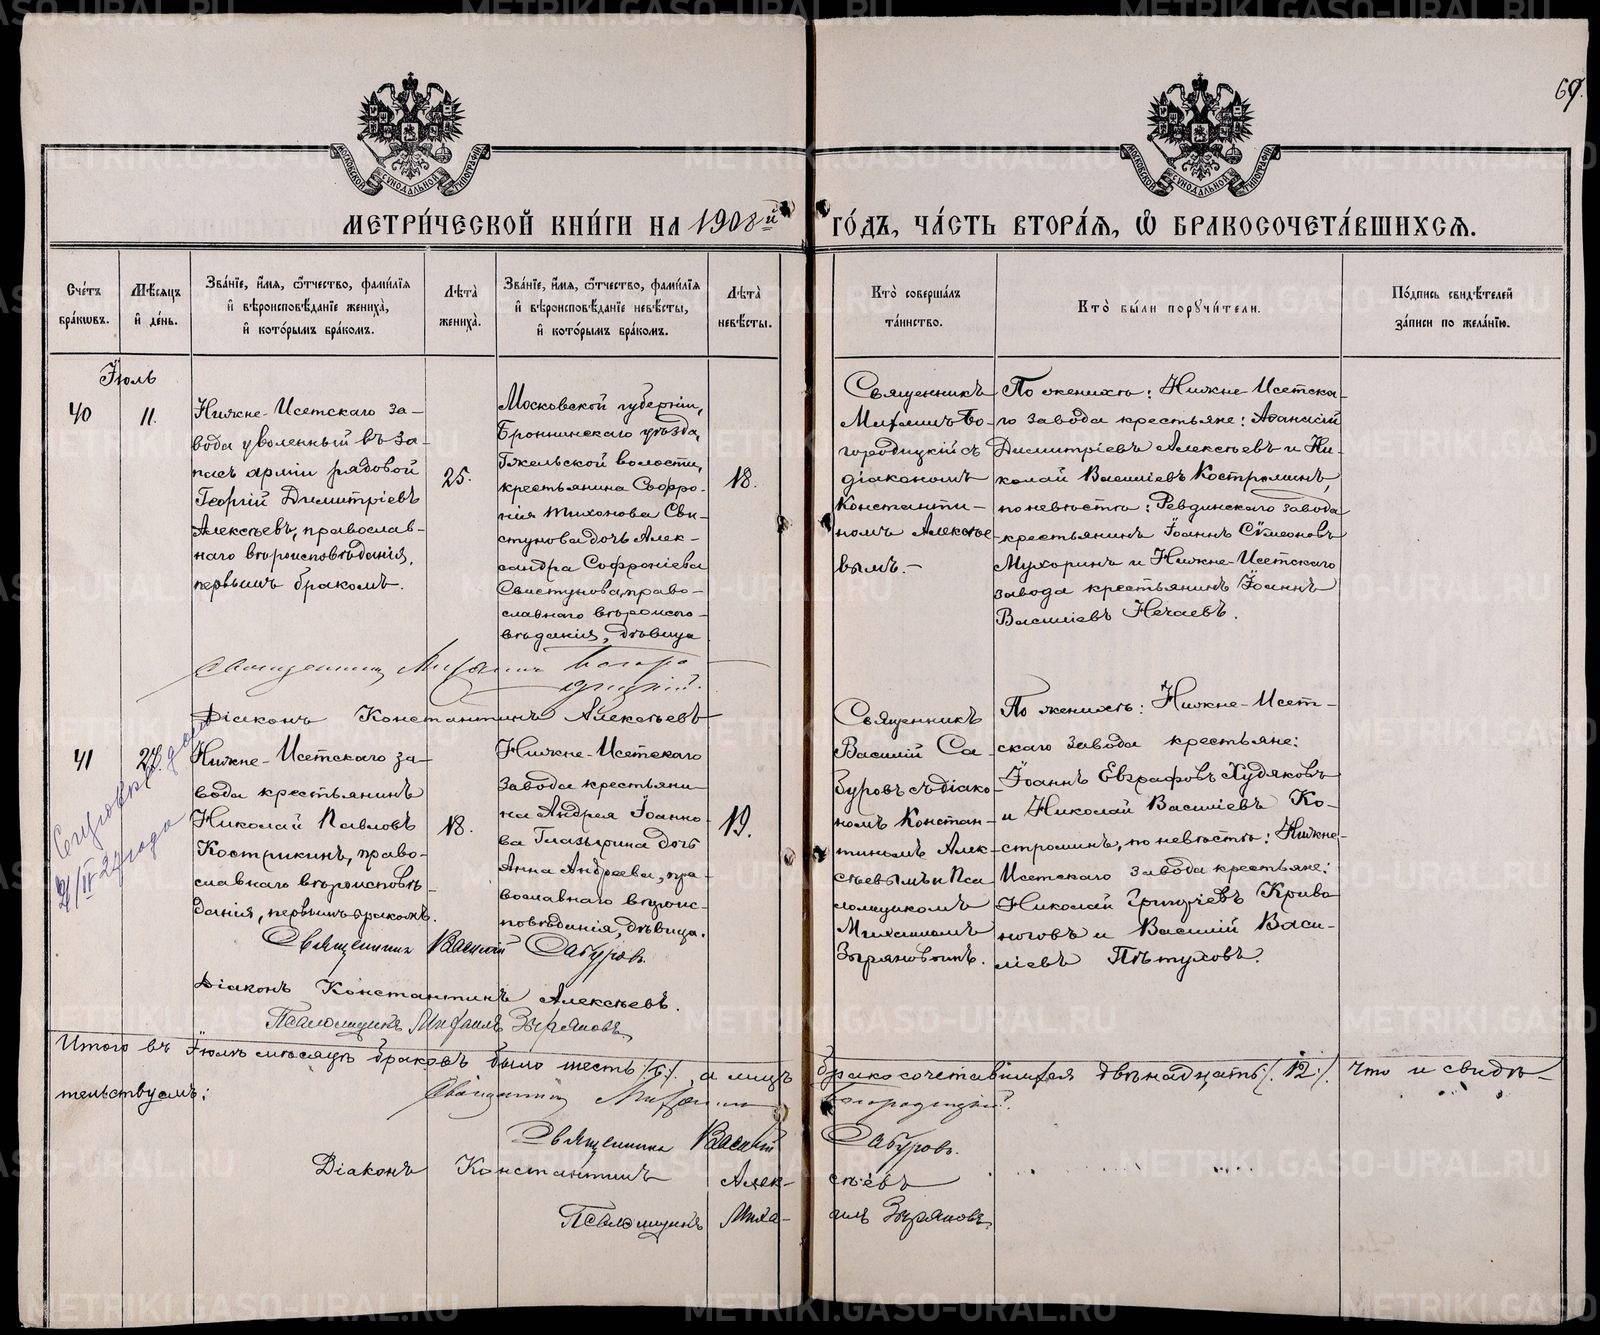 69.
МОСКОВСКОЙ СУНОДАЛЬНОЙ ТИПОГРАФІИ
МОСКОВСКОЙ СУНОДАЛЬНОЙ ТИПОГРАФІИ
МЕТРИ́ЧЕСКОЙ КНИ́ГИ НА 1908й ГО́ДЪ, ЧА́СТЬ ВТОРА́Я, Ѿ БРАКОСОЧЕТА́ВШИХСЯ.
Сче́тъ
бра́кωвъ.
Мѣ́сяцъ
и҆ де́нь.
Зва́нїе, и҆́мя, ѻ҆́тчество, фами́лїя
и҆ вѣроисповѣ́данїе жениха̀,
и҆ кото́рымъ бра́комъ.
Лѣ́та
жениха̀.
Зва́нїе, и҆́мя, ѻ҆́тчество, фами́лїя
и҆ вѣроисповѣ́данїе невѣ́сты,
и҆ кото́рымъ бра́комъ.
Лѣ́та
невѣ́сты.
Кто̀ соверша́лъ
та́инство.
Кто̀ бы́ли порꙋчи́тели.
По́дпись свидѣ́телей
за́писи по жела́нїю.
Іюль
40
11.
Нижне-Исетскаго за-
вода уволенный въ за-
пасъ арміи рядовой
Георгій Димитріевъ
Алексѣевъ, православ-
наго вѣроисповѣданія,
первымъ бракомъ.
25.
Московской губерніи,
Бронницкаго уѣзда,
Гжельской волости,
крестьянина Софро-
нія Тихонова Сви-
стунова дочь Алек-
сандра Софроніева
Свистунова, право-
славнаго вѣроиспо-
вѣданія, дѣвица
18.
Священникъ
Михаилъ Бо-
городицкій съ
діакономъ
Константи-
номъ Алексѣе-
вымъ.-
По женихѣ: Нижне-Исетска-
го завода крестьяне: Аѳанасій
Димитріевъ Алексѣевъ и Ни-
колай Василіевъ Костроминъ,
по невѣстѣ: Ревдинскаго завода
крестьянинъ Іоаннъ Сѵмеоновъ
Мухоринъ и Нижне-Исетскаго
завода крестьянинъ Іоаннъ
Василіевъ Нечаевъ.
Священникъ Михаилъ Богоро
дицкій.
Діаконъ Константинъ Алексѣевъ
41
24.
Нижне-Исетскаго за-
вода крестьянинъ
Николай Павловъ
Кострикинъ, право-
славнаго вѣроисповѣ-
данія, первымъ бракомъ.
18.
Нижне-Исетскаго
завода крестьяни-
на Андрея Іоанно-
ва Глазырина дочь
Анна Андреева, пра-
вославнаго вѣроис-
повѣданія, дѣвица.
19.
Священникъ
Василій Са-
буровъ съ діако-
номъ Констан-
тиномъ Алек-
сѣевымъ и Пса
ломщикомъ
Михаиломъ
Зыряновымъ.
По женихѣ: Нижне-Исет-
скаго завода крестьяне:
Іоаннъ Евграфовъ Худяковъ
и Николай Василіевъ Ко-
строминъ, по невѣстѣ: Нижне-
Исетскаго завода крестьяне:
Николай Григоріевъ Криво
ноговъ и Василій Васи-
ліевъ Пѣтуховъ.
Священникъ Василій Сабуровъ
Діаконъ Константинъ Алексѣевъ.
Псаломщикъ Михаилъ Зыряновъ
Итого въ Іюлѣ мѣсяцѣ браковъ было шесть /6/, а лицъ бракосочетавшихся двѣнадцать /.12./. Что и свидѣ-
тельствуемъ:
Священникъ Михаилъ Богородицкій.
Священникъ Василій Сабуровъ.
Діаконъ Константинъ Алек-сѣевъ
Псаломщикъ Миха-илъ Зыряновъ
METRIKI.GASO-URAL.RU